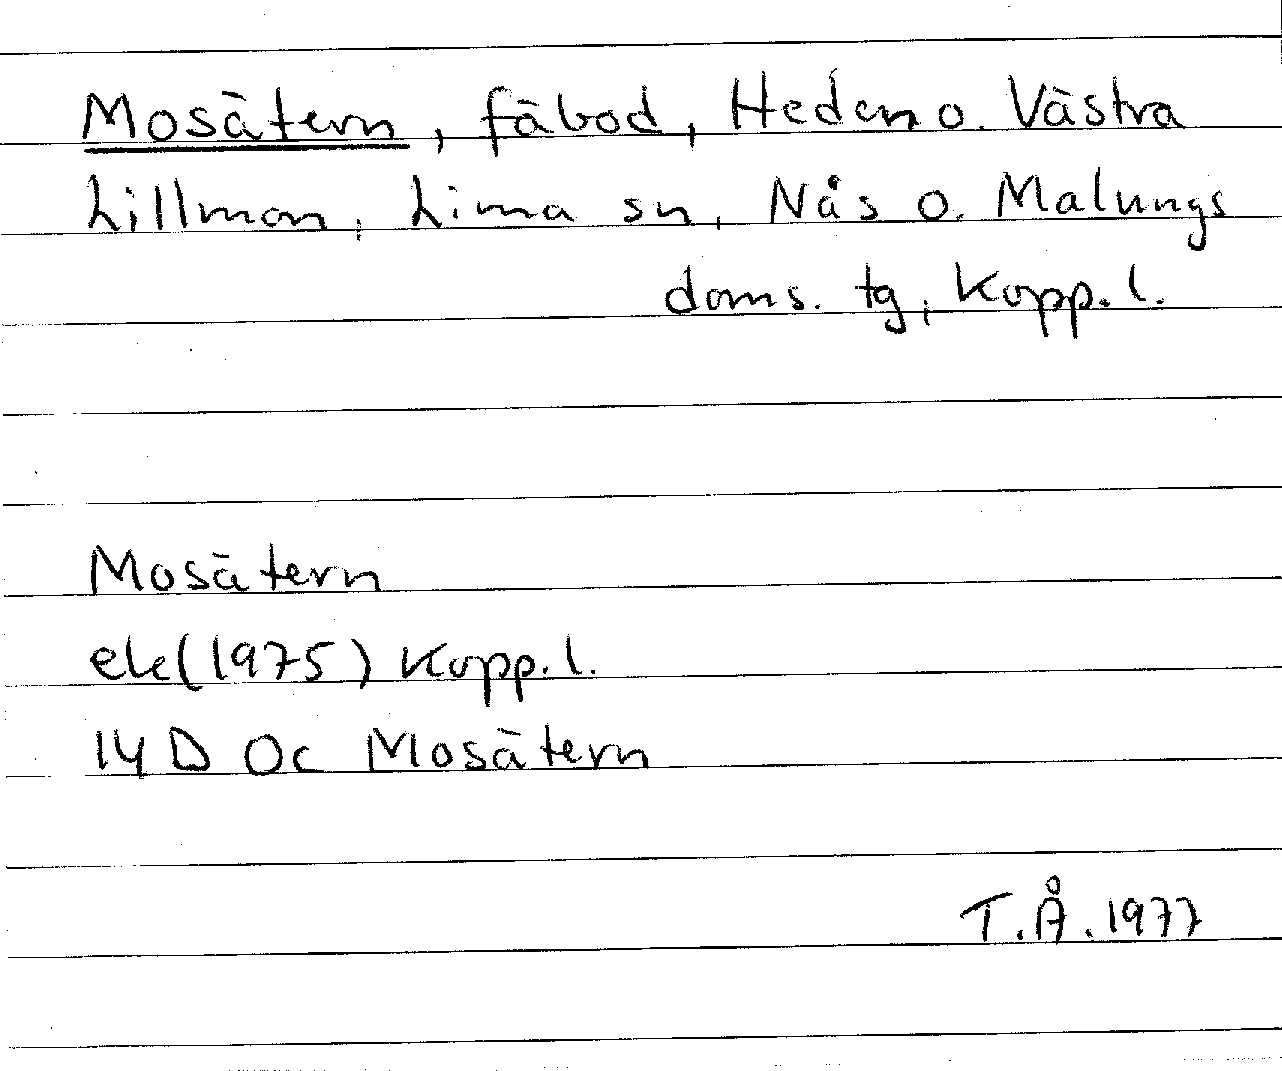 Mosätern, fäbod, Heden o. Västra
Lillmon, Lima sn, Nås o. Malungs
doms. tg, Kopp. l.
Mosätern
ek(1975) Kopp. l.
14 D 0c Mosätern
T.Å. 1977